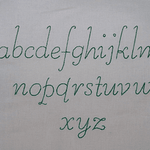 abcdefghijklm
nopqrstuvw
xyz